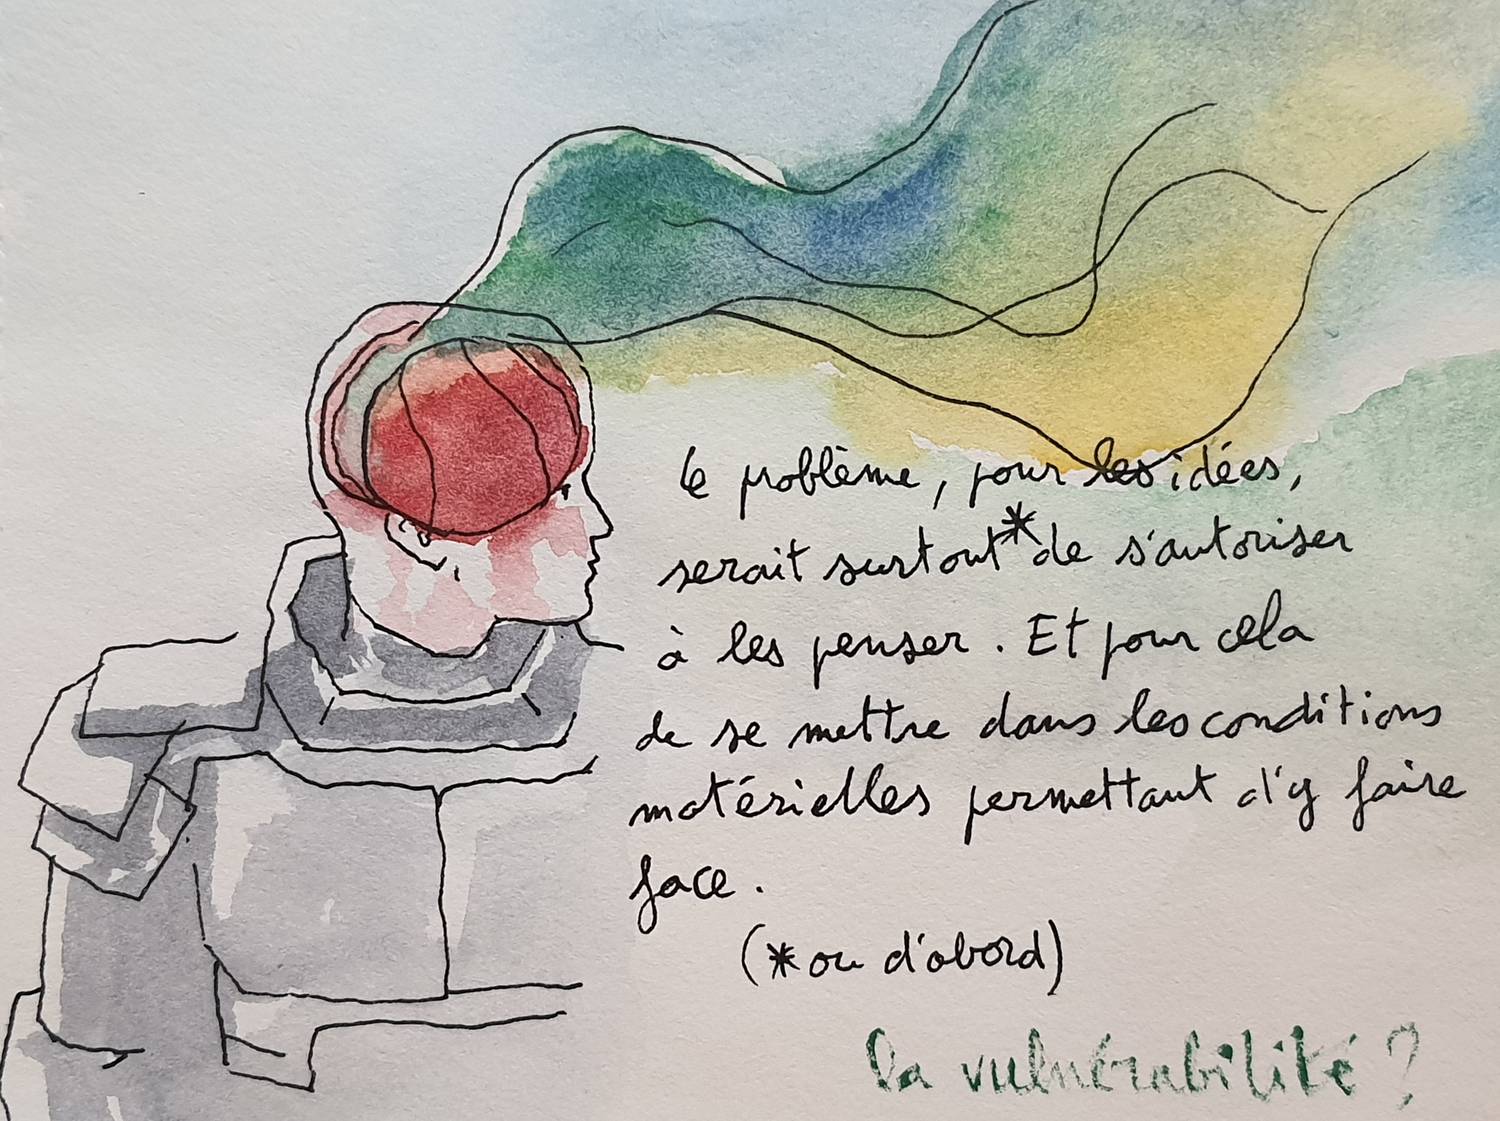 le problème, pour les idées,
serait surtout* de s'autoriser
à les penser. Et pour cela
de se mettre dans les conditions
matérielles permettant d'y faire
face.
(* ou d'abord)
la vulnérabilité ?